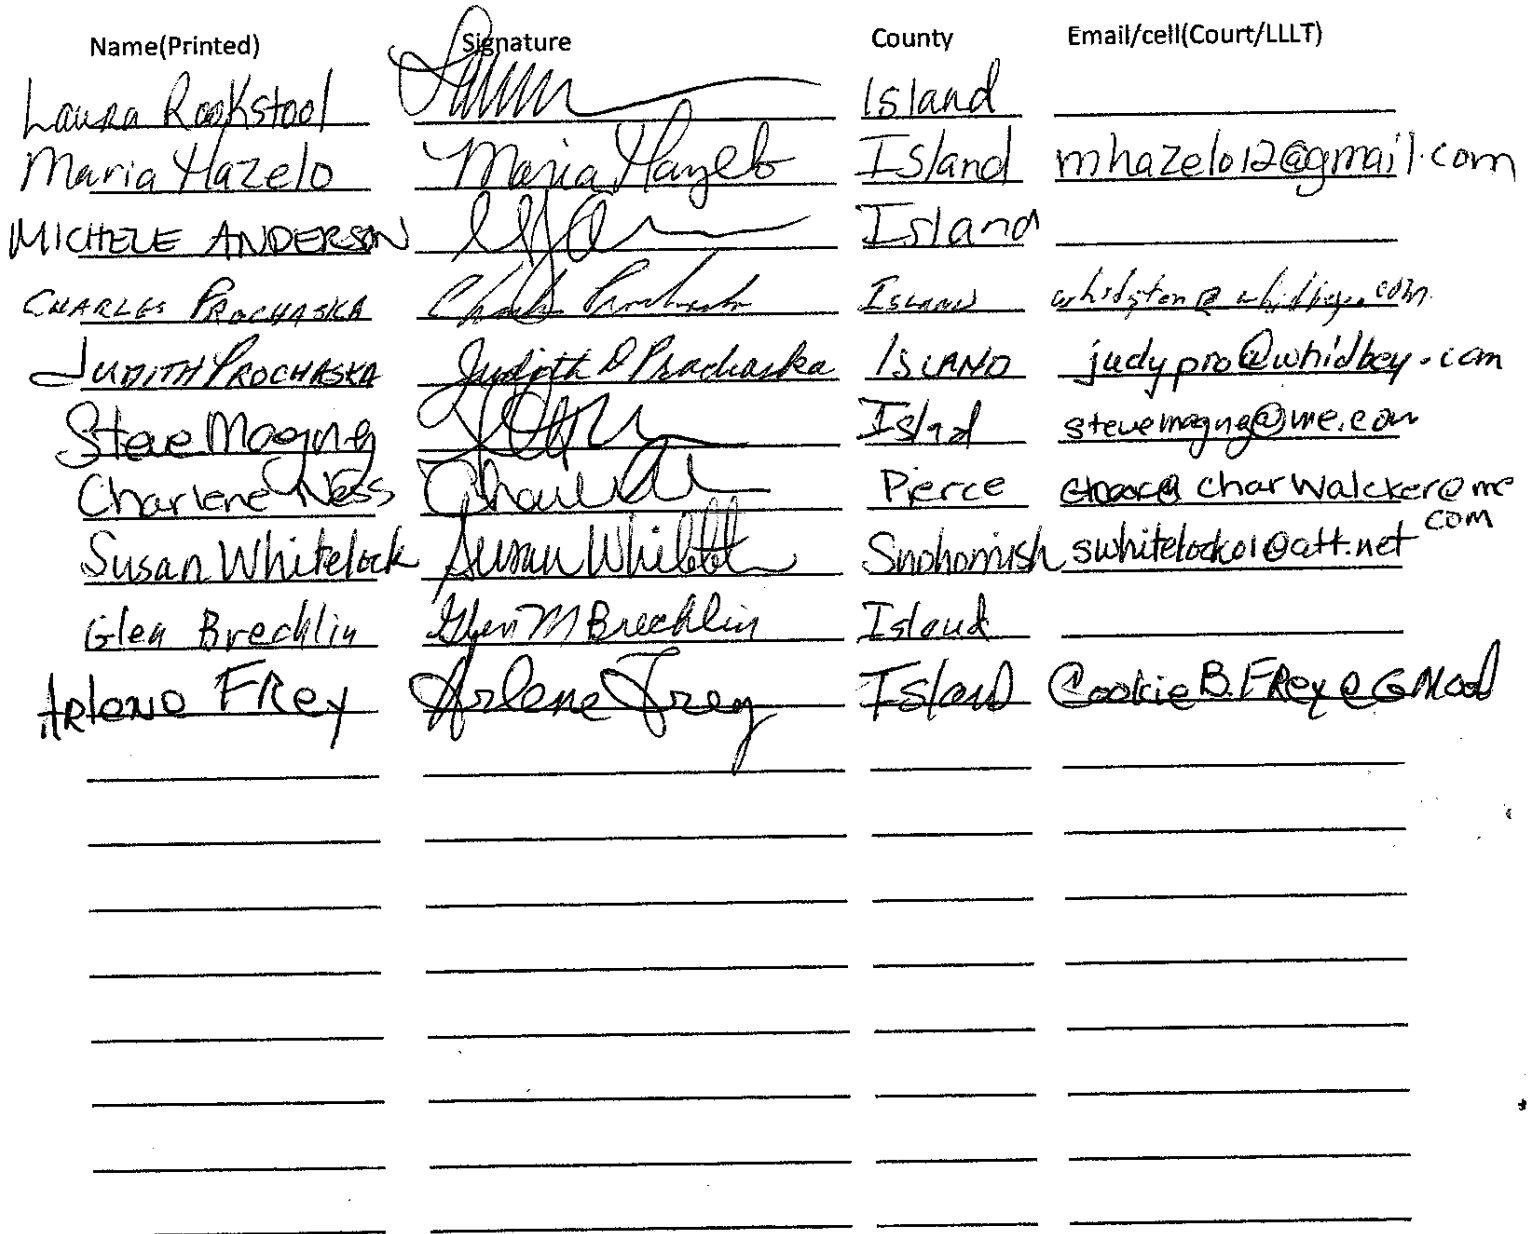 Name(Printed) Signature County Email/cell(Court/LLLT)
Laura Rookstool Island
Maria Hazelo Maria Hazelo Island mhazelo12@gmail.com
MICHELE ANDERSON Island
CHARLES PROCHASKA Charles Prochaska ISLAND
JUDITH PROCHASKA Judith D Prochaska ISLAND judypro@whidbey.com
Steve Island stevemagng@me.com
Charlene Ness Pierce charwalcker@me
com
Susan Whitelock Susan Snohomish swhitelock01@att.net
Glen Brechlin Glen M Brechlin Island
Arlene Frey Arlene Frey Island CookieB.FRey@